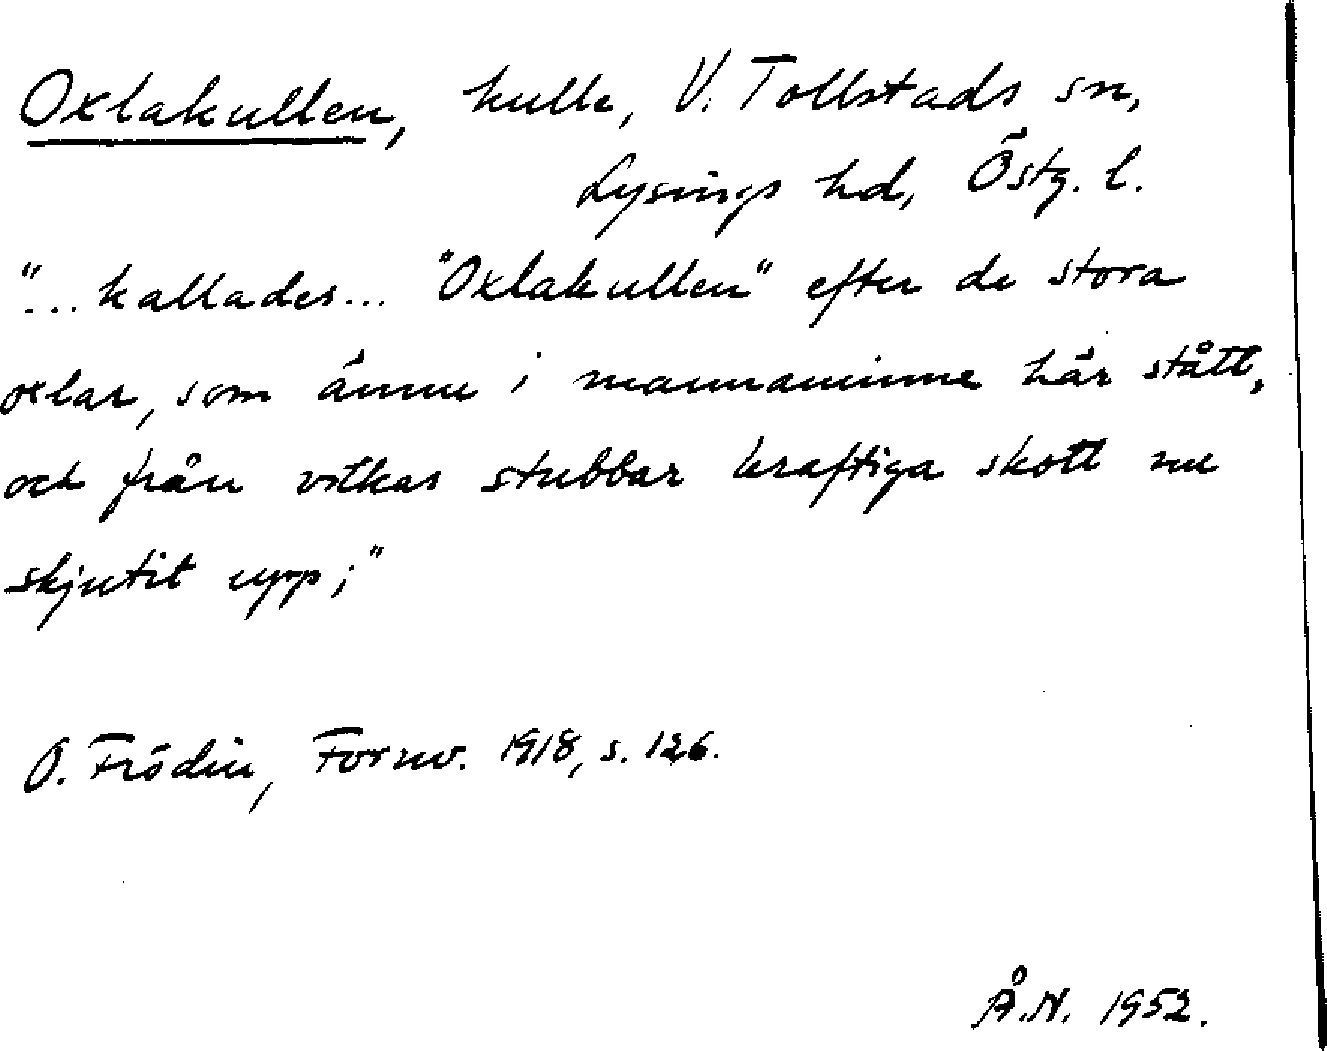 Oxlakullen, kulle, V. Tollstads sn,
Lysings hd, Östg. l.
"... kallades... "Oxlakullen" efter de stora
oxlar, som ännu i mannaminne här stått,
och från vilkas stubbar kraftiga skott nu
skjutit upp;"
O. Frödin, Fornv. 1918, s. 126.
Å.N. 1952.